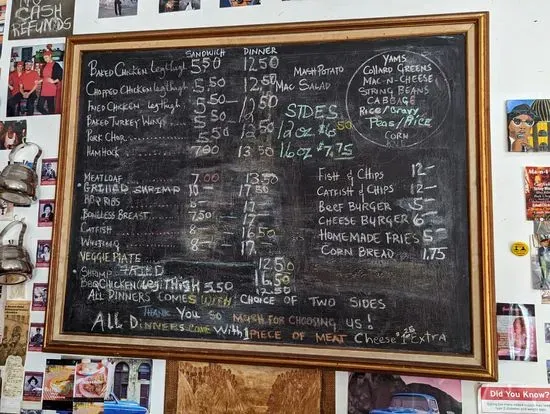 NO CASH
REFUNDS
SANDWICH DINNER
BAKED CHICKEN Leg thigh 5.50 12.50
CHOPPED CHICKEN Leg thigh 5.50 12.50
FRIED CHICKEN leg thigh 5.50 12.50
BAKED TURKEY Wings 5.50 12.50
PORK CHOP 5.50 12.50
HAM HOCK 7.00 13.50
MASH POTATO
MAC SALAD
SIDES
12 oz \$6.50
16 oz \$7.75
YAMS
COLLARD GREENS
MAC-N-CHEESE
STRING BEANS
CABBAGE
RICE/GRAVY
PEAS/RICE
CORN
MEATLOAF 7.00 13.50
GRILLED SHRIMP 10- 17.50
BBQ RIBS 8- 17-
BONELESS BREAST 7.50 17-
CATFISH 8- 16.50
WHITING 8- 17-
VEGGIE PLATE 12.50
SHRIMP FRIED 16.50
BBQ CHICKEN Leg THIGH 5.50 12.50
FISH & CHIPS 12-
CATFISH & CHIPS 12-
BEEF BURGER 5-
CHEESE BURGER 6-
HOMEMADE FRIES 5-
CORN BREAD 1.75
ALL DINNERS COMES WITH CHOICE OF TWO SIDES
THANK YOU SO MUSH FOR CHOOSING US!
ALL DINNERS COME WITH 1 PIECE OF MEAT CHEESE EXTRA
Did You Know?